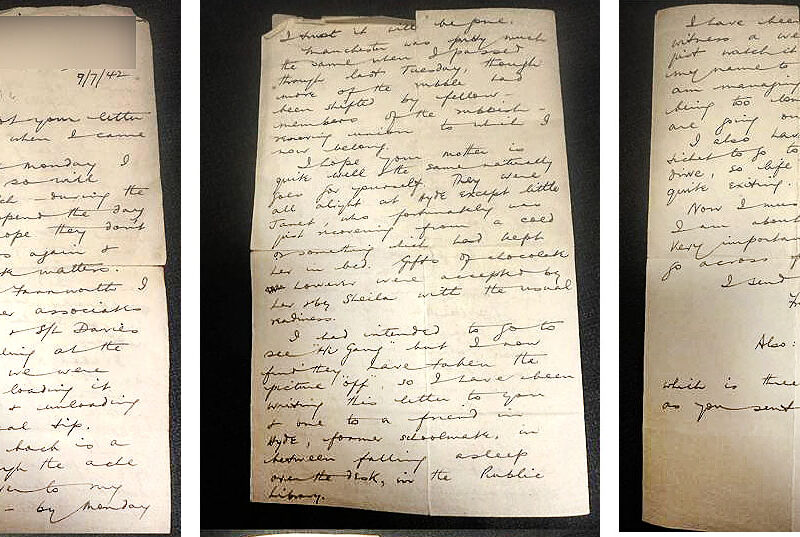 9/7/42
your letter
when I came
monday I
so with
during the
spend the day
hope they don't
again &
matters.
Farnworth I
associates
& S/L Davies
at the
we were
loading it
& unloading
tip.
back is a
the ache
to my
- by Monday
I trust it will be fine.
Manchester was pretty much
the same when I passed
though last Tuesday, though
more of the rubble had
been shifted by fellow-
members of the rubbish-
removing union to which I
now belong.
I hope your mother is
quite well & the same naturally
goes for yourself. They were
all alight at Hyde except little
Janet who fortunately was
just recovering from a cold
or something which had kept
her in bed. Gifts of chocolate
however were accepted by
her & by Sheila with the usual
readiness.
I had intended to go to
see "Hi Gang" but I now
find they have taken the
picture off, so I have been
writing this letter to you
& one to a friend in
Hyde, former schoolmate, in
between falling asleep
over the desk, in the Public
Library.
I have been
witness a we
just watch
my name to
am managing
being too
are going on
I also hav
ticket to go to
drive, so life
quite exiting.
Now I mus
I am about
very importan
go across
I send
Also:
which is three
as you sent